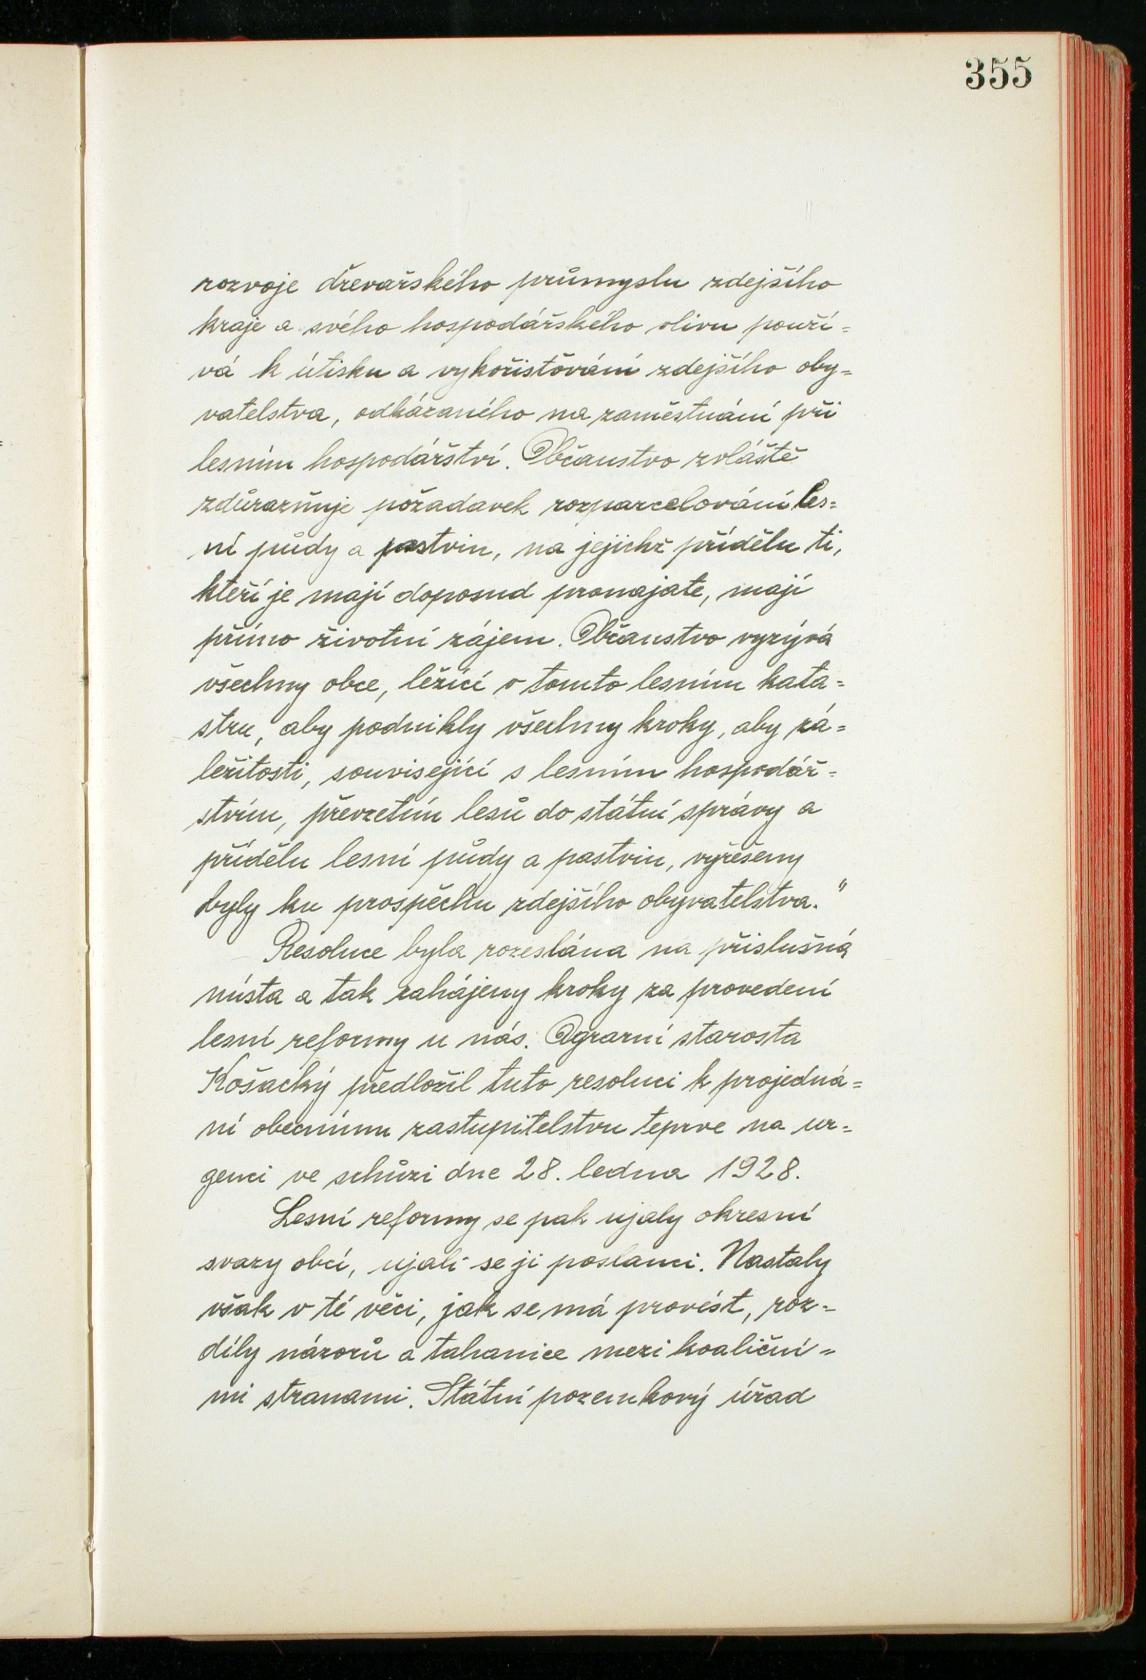 355
rozvoje dřevařského průmyslu zdejšího
kraje a svého hospodářského vlivu použí=
vá k útisku a vykořisťování zdejšího oby=
vatelstva, odkázaného na zaměstnání při
lesním hospodářství. Občanstvo zvláště
zdůrazňuje požadavek rozparcelování les=
ní půdy a pastvin, na jejichž přídělu ti,
kteří je mají doposud pronajate, mají
přímo životní zájem. Občanstvo vyzývá
všechny obce, ležící v tomto lesním kata=
stru, aby podnikly všechny kroky, aby zá=
ležitosti, související s lesním hospodář=
stvím, převzetím lesů do státní správy a
přídělu lesní půdy a pastvin, vyřešeny
byly ku prospěchu zdejšího obyvatelstva."
Resoluce byla rozeslána na příslušná
místa a tak zahájeny kroky za provedení
lesní reformy u nás. Agrarní starosta
Košacký předložil tuto resoluci k projedná=
ní obecnímu zastupitelstvu teprve na ur=
genci ve schůzi dne 28. ledna 1928.
Lesní reformy se pak ujaly okresní
svazy obcí, ujali se jí poslanci. Nastaly
však v té věci, jak se má provést, roz=
díly názorů a tahanice mezi koaliční=
mi stranami. Státní pozemkový úřad